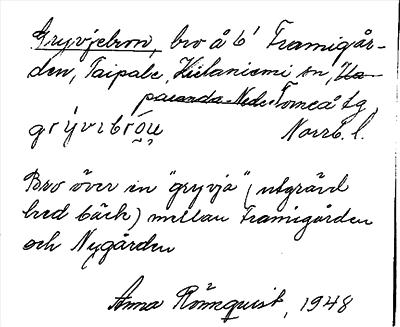 Gryvjebron, bro å b' Framigår-
den, Taipale, Kiilaniemi sn, Ha-
paranda-Ned. Torneå tg,
grývıbróu̯ Norrb. l.
Bro över in "gryvjå" (utgrävd
bred bäck) mellan Framigården
och Nygården
Anna Rönnquist, 1948